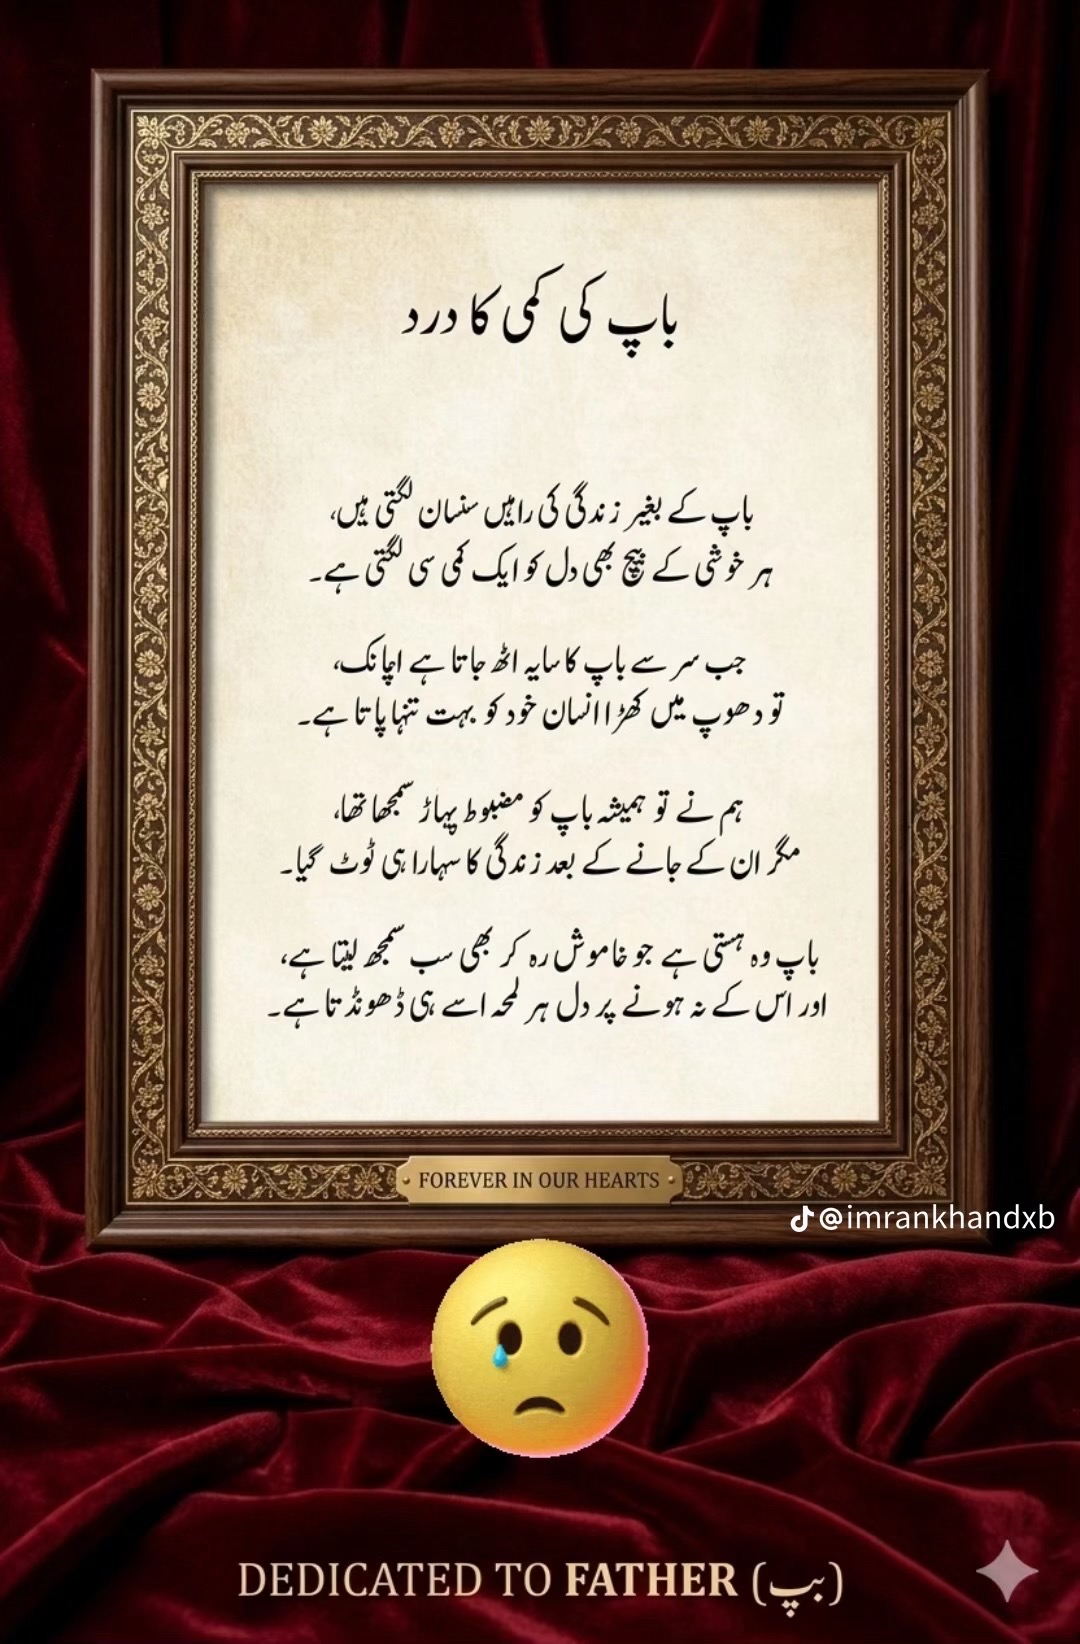 باپ کی کمی کا درد
باپ کے بغیر زندگی کی راہیں سنسان لگتی ہیں،
ہر خوشی کے بیچ بھی دل کو ایک کمی سی لگتی ہے۔
جب سر سے باپ کا سایہ اٹھ جاتا ہے اچانک،
تو دھوپ میں کھڑا انسان خود کو بہت تنہا پاتا ہے۔
ہم نے تو ہمیشہ باپ کو مضبوط پہاڑ سمجھا تھا،
مگر ان کے جانے کے بعد زندگی کا سہارا ہی ٹوٹ گیا۔
باپ وہ ہستی ہے جو خاموش رہ کر بھی سب سمجھ لیتا ہے،
اور اس کے نہ ہونے پر دل ہر لمحہ اسے ہی ڈھونڈتا ہے۔
FOREVER IN OUR HEARTS
@imrankhandxb
DEDICATED TO FATHER (بپ)